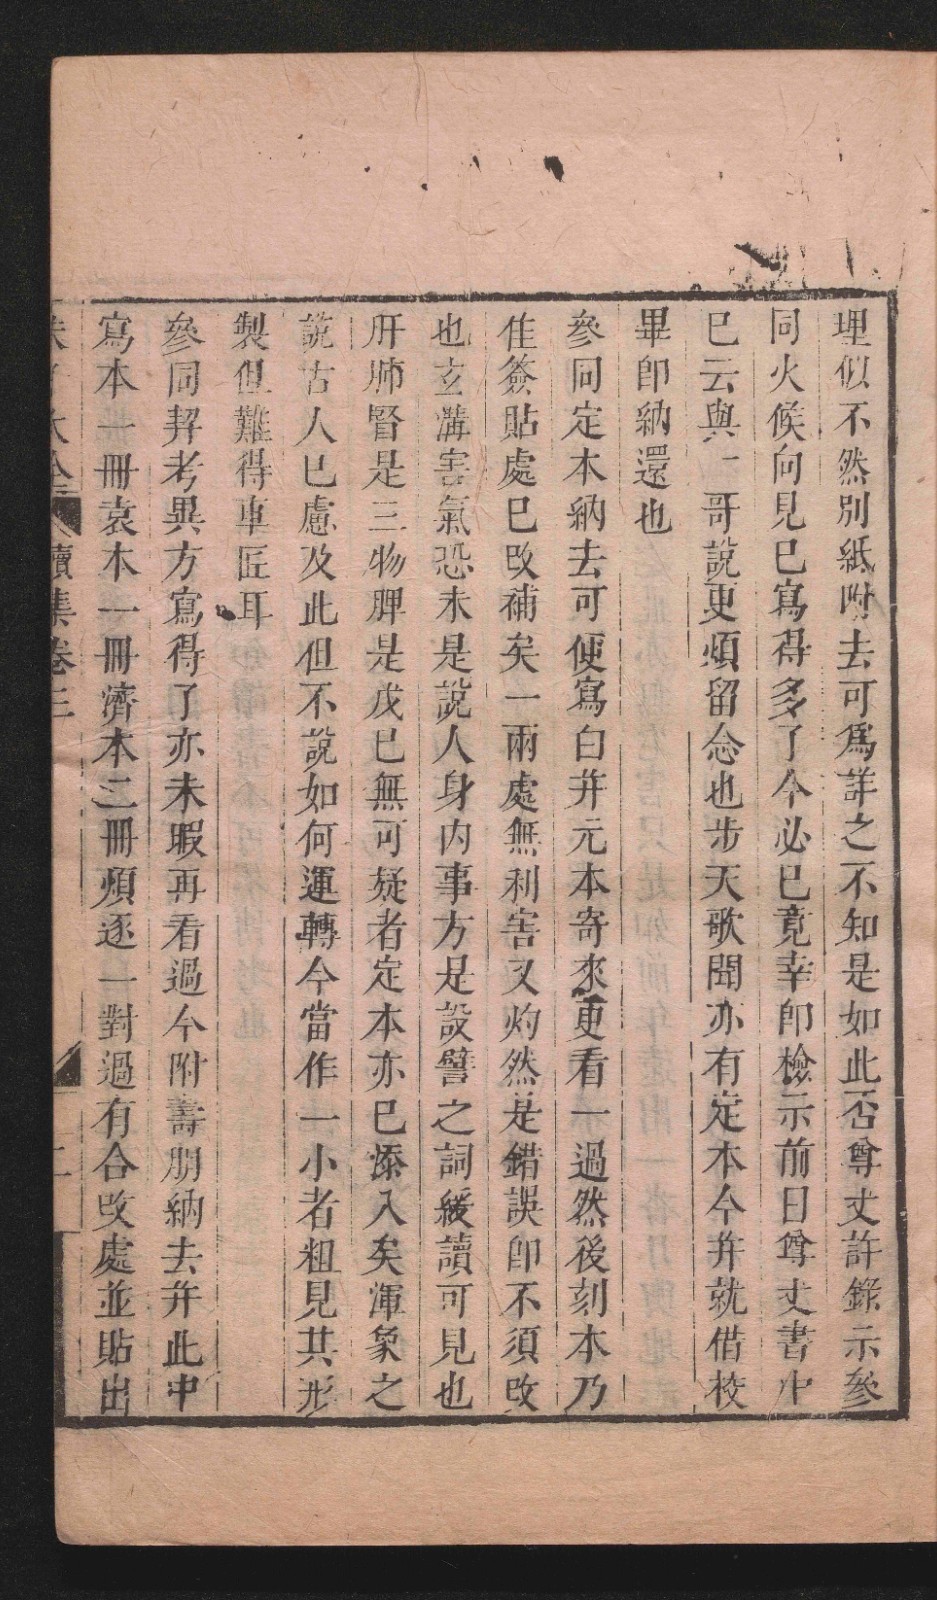 理似不然別紙附去可爲詳之不知是如此否尊丈許錄示參
同火候向見已寫得多了今必已竟幸即檢示前日尊丈書中
已云與一哥說更煩留念也步天歌聞亦有定本今并就借校
畢即納還也
參同定本納去可便寫白并元本寄來更看一過然後刻本乃
佳簽貼處已改補矣一兩處無利害又灼然是錯誤即不須改
也玄溝害氣恐未是說人身内事方是設譬之詞緩讀可見也
肝肺腎是三物脾是戊巳無可疑者定本亦已添入矣渾象之
說古人已慮及此但不說如何運轉今當作一小者粗見其形
製但難得車匠耳
參同契考異方寫得了亦未暇再看過今附壽朋納去并此中
寫本一冊袁本一冊濟本三冊煩逐一對過有合改處並貼出
朱子大全 續集卷三 二